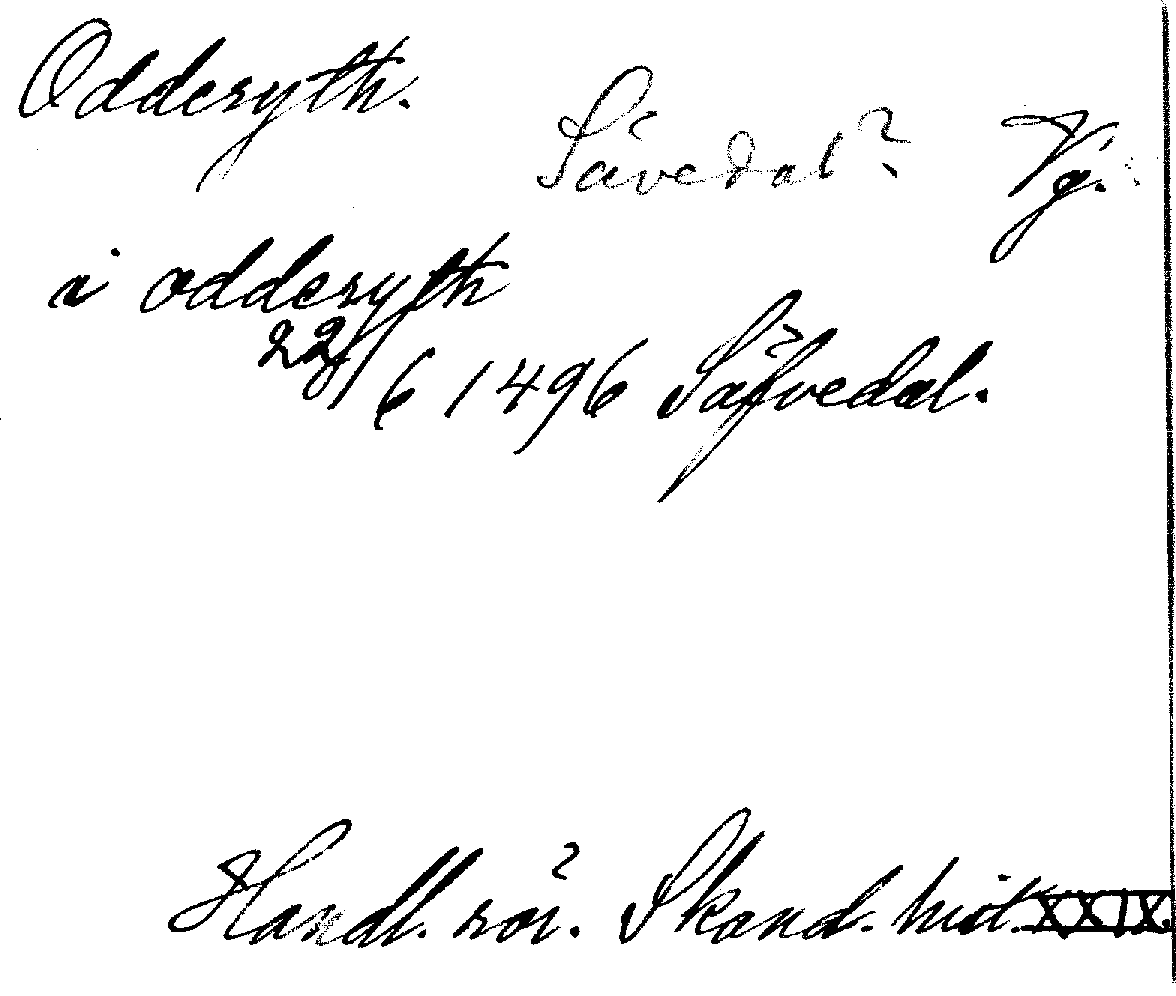 Odderyth.
Sävedal? Vg.
i odderyth
22/6 1496 Säfvedal.
Handl. rör. Skand. hist. XXIX.